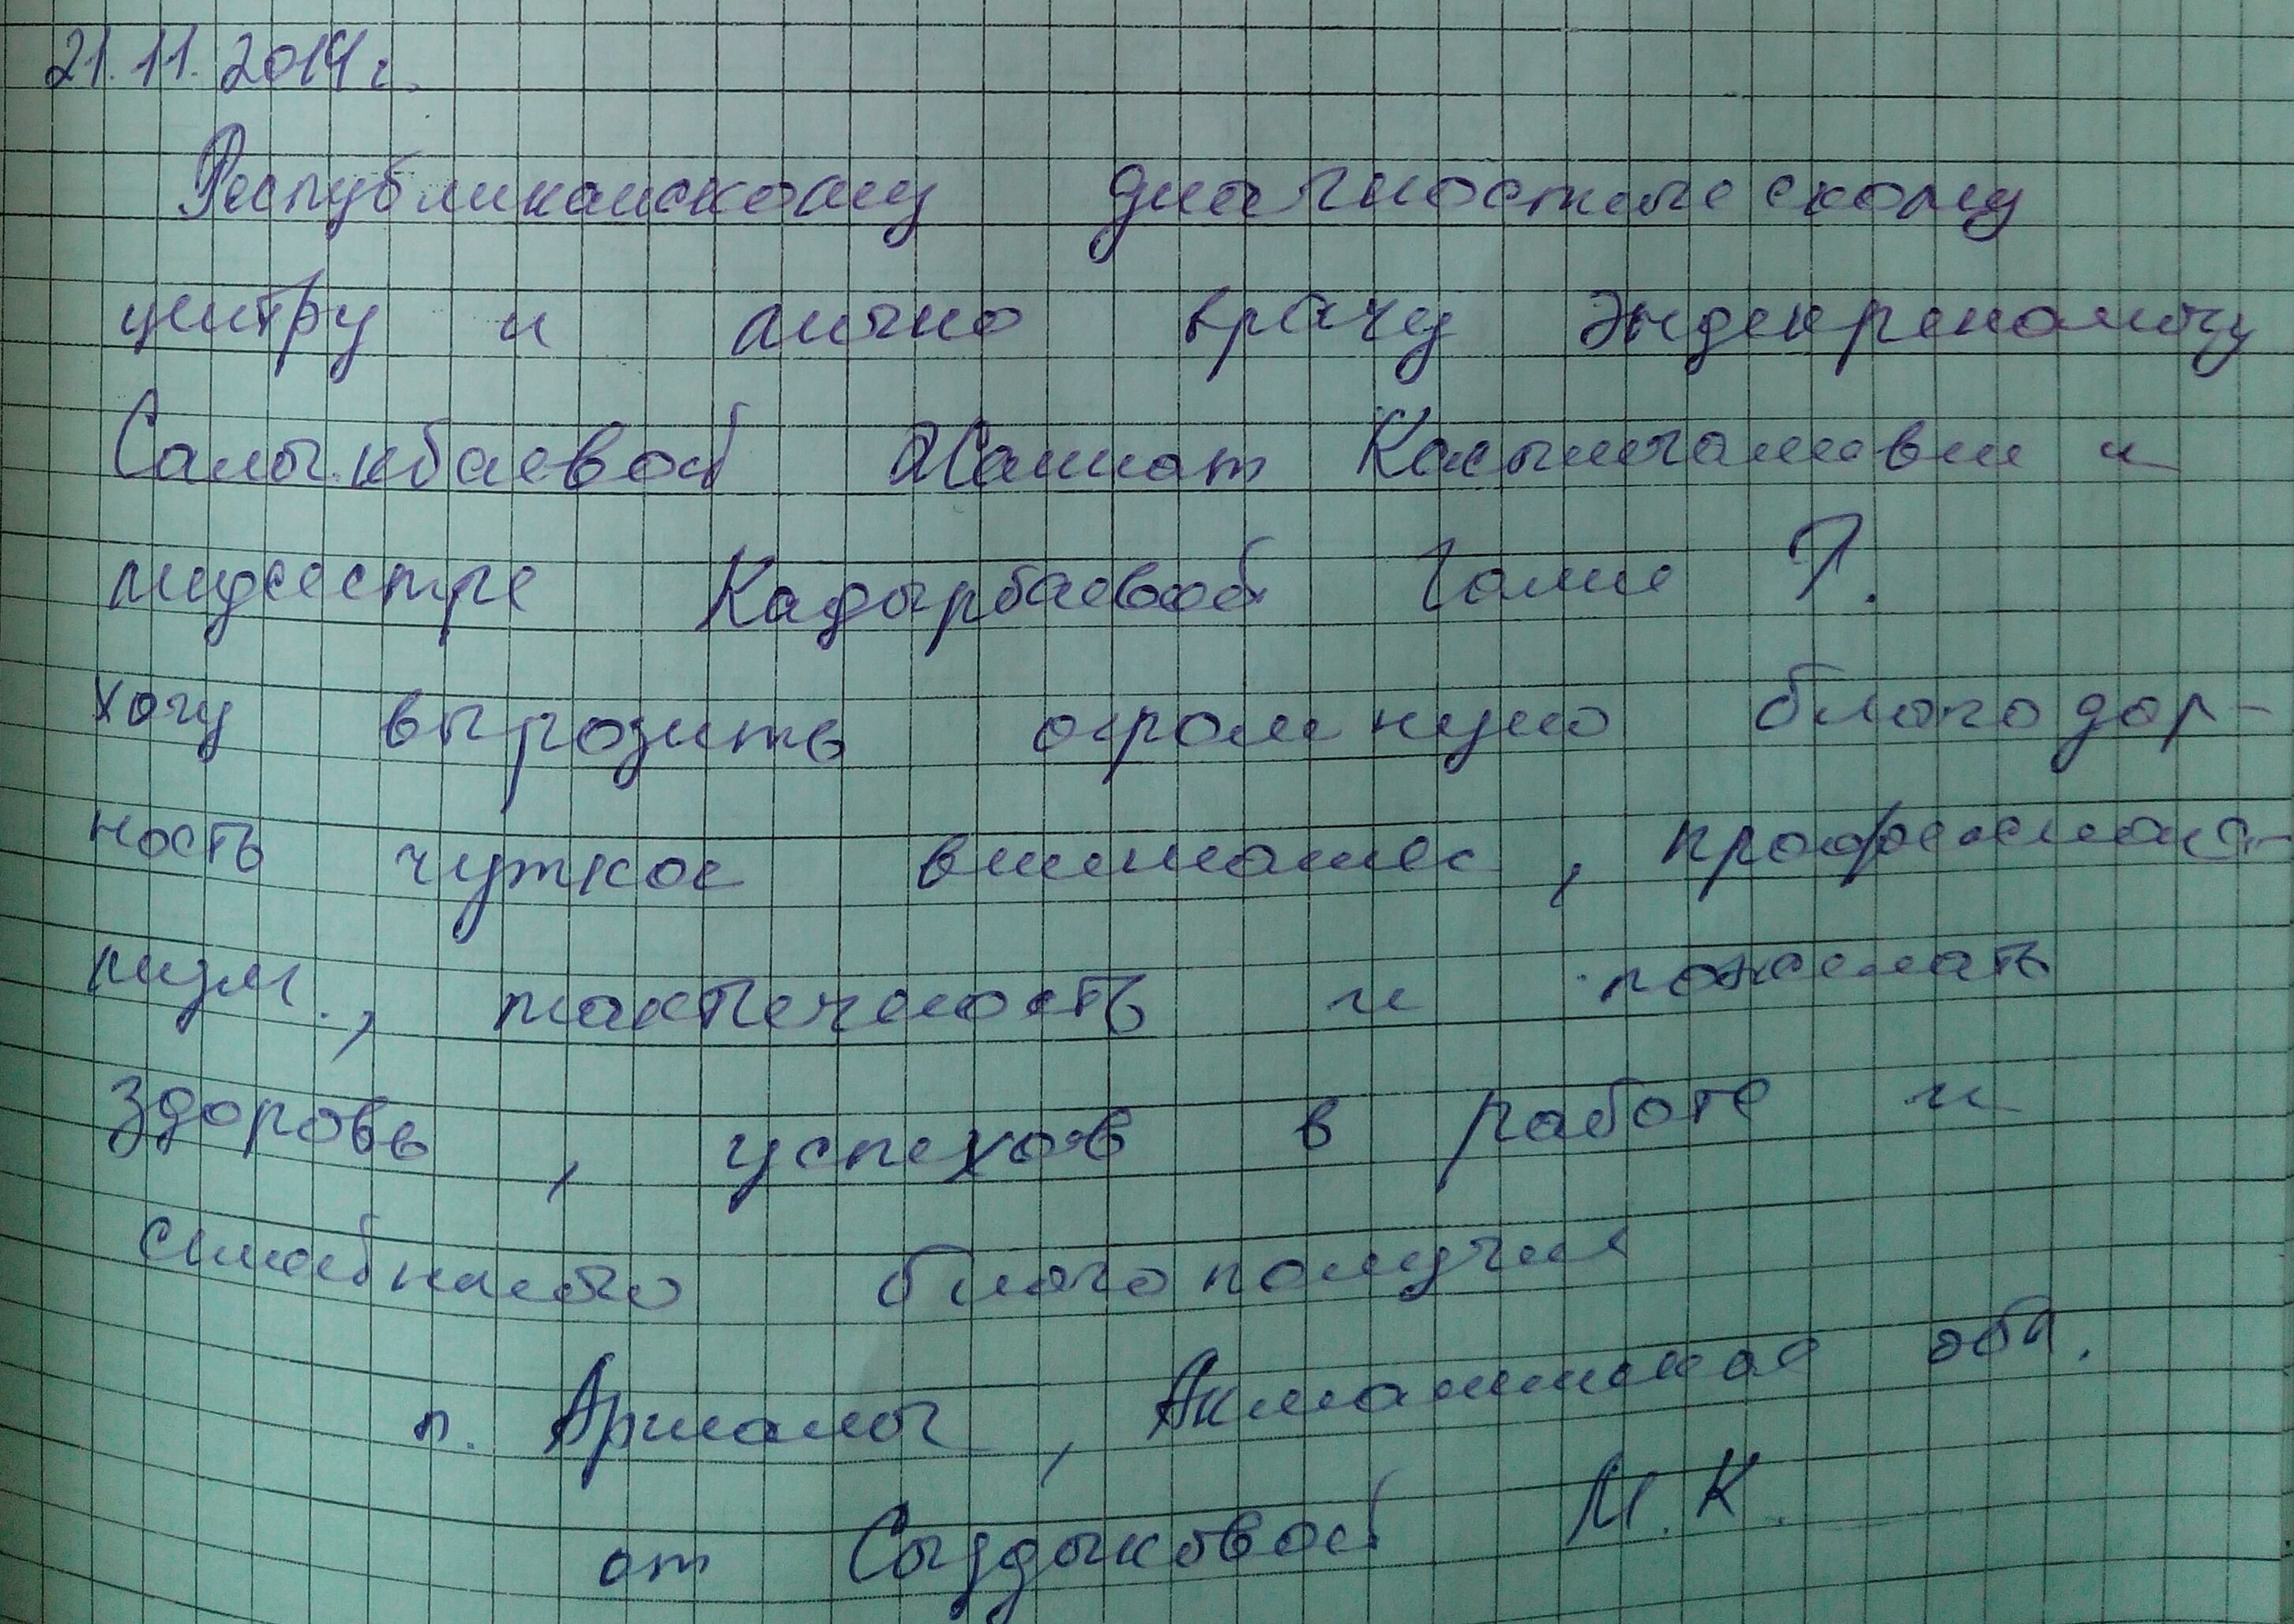 21.11.2014г.
Республиканскому диагностическому
центру и лично врачу эндекренологу
Салыкбаевой Жаннат Касымгалиевне и
мидсестре Кадырбаевой Галие Т.
хочу вырозить огромную благодар-
ность чуткое внимание, професиона-
лизм, тактечность и пожелать
здоровь, успехов в работе и
симейнного благополучия
п. Аршалы, Акмалинская обл.
от Сыздыковой М.К.